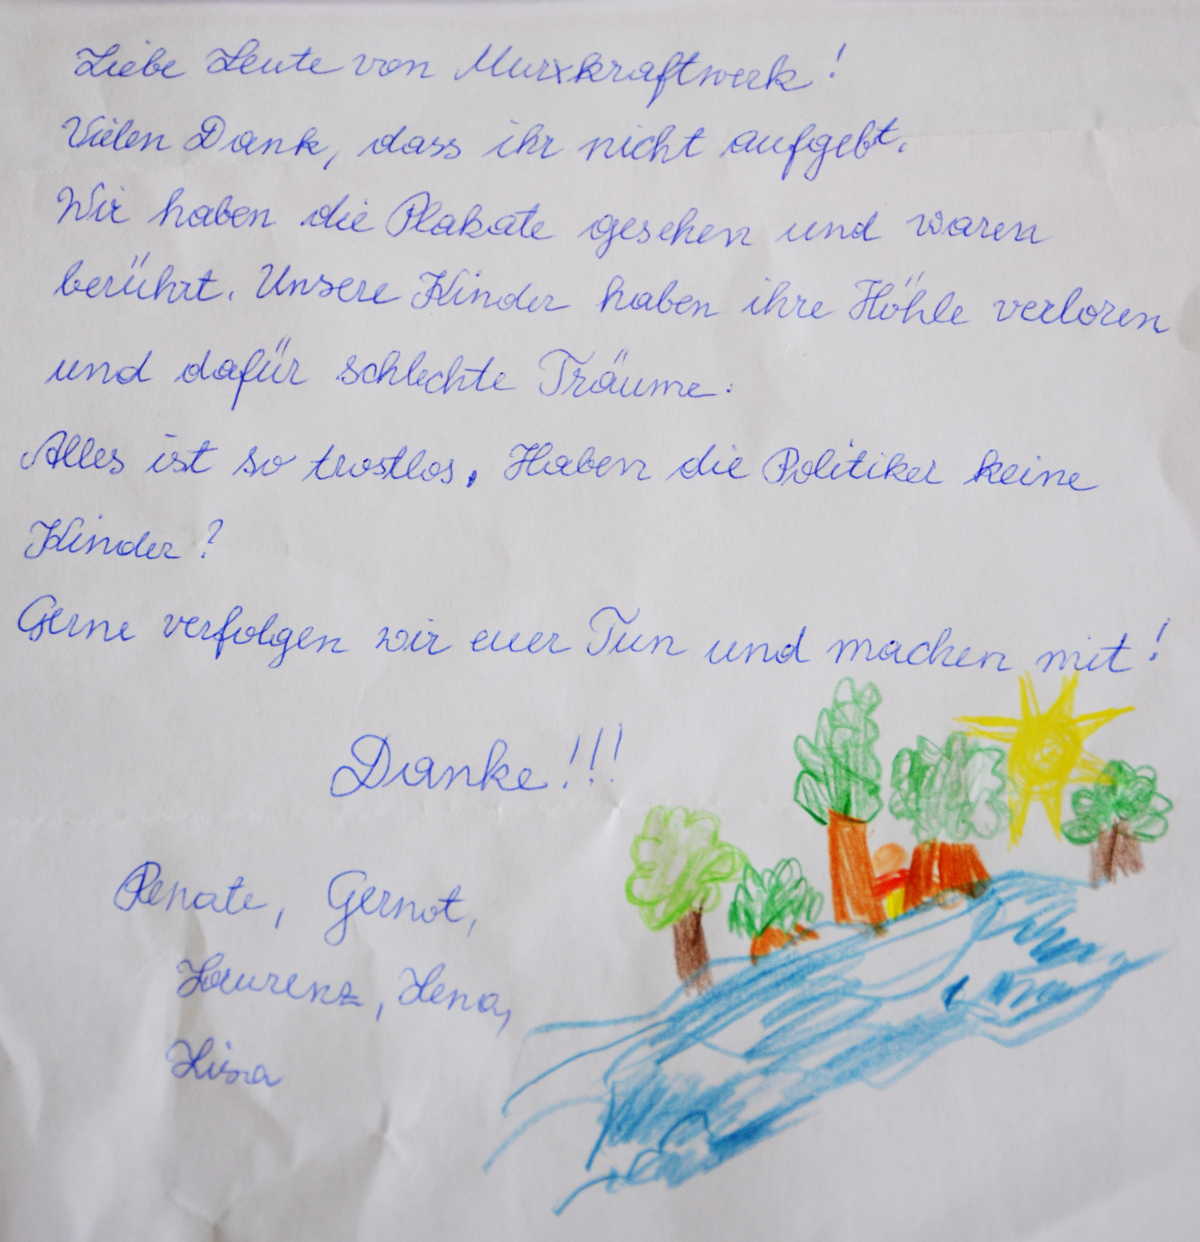 Liebe Leute von Murxkraftwerk!
Vielen Dank, dass ihr nicht aufgebt.
Wir haben die Plakate gesehen und waren
berührt. Unsere Kinder haben ihre Höhle verloren
und dafür schlechte Träume.
Alles ist so trostlos. Haben die Politiker keine
Kinder?
Gerne verfolgen wir euer Tun und machen mit!
Danke!!!
Renate, Gernot,
Laurenz, Lena,
Lisa